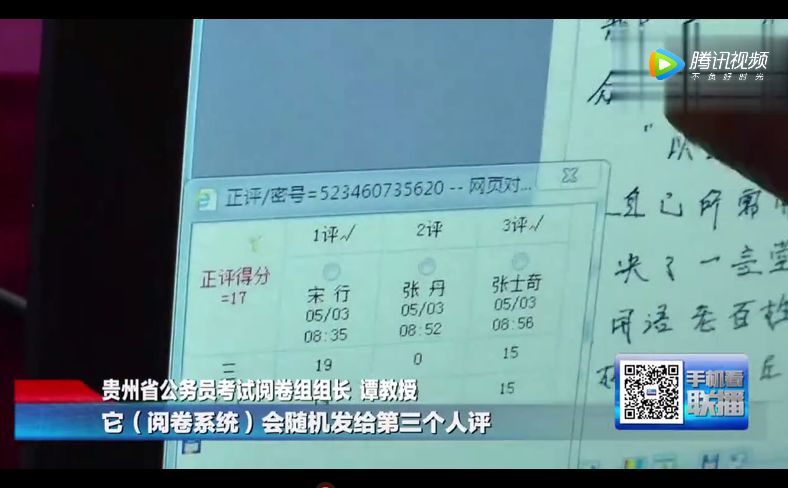 腾讯视频
不负好时光
正评/密号=523460735620 -- 网页对...
1评√ 2评 3评√
正评得分
=17
宋 行 张 丹 张士苛
05/03 05/03 05/03
08:35 08:52 08:56
三 19 0 15
15
自己所
决了一言堂
用语 老百姓
贵州省公务员考试阅卷组组长 谭教授
它（阅卷系统）会随机发给第三个人评
手机看
联播